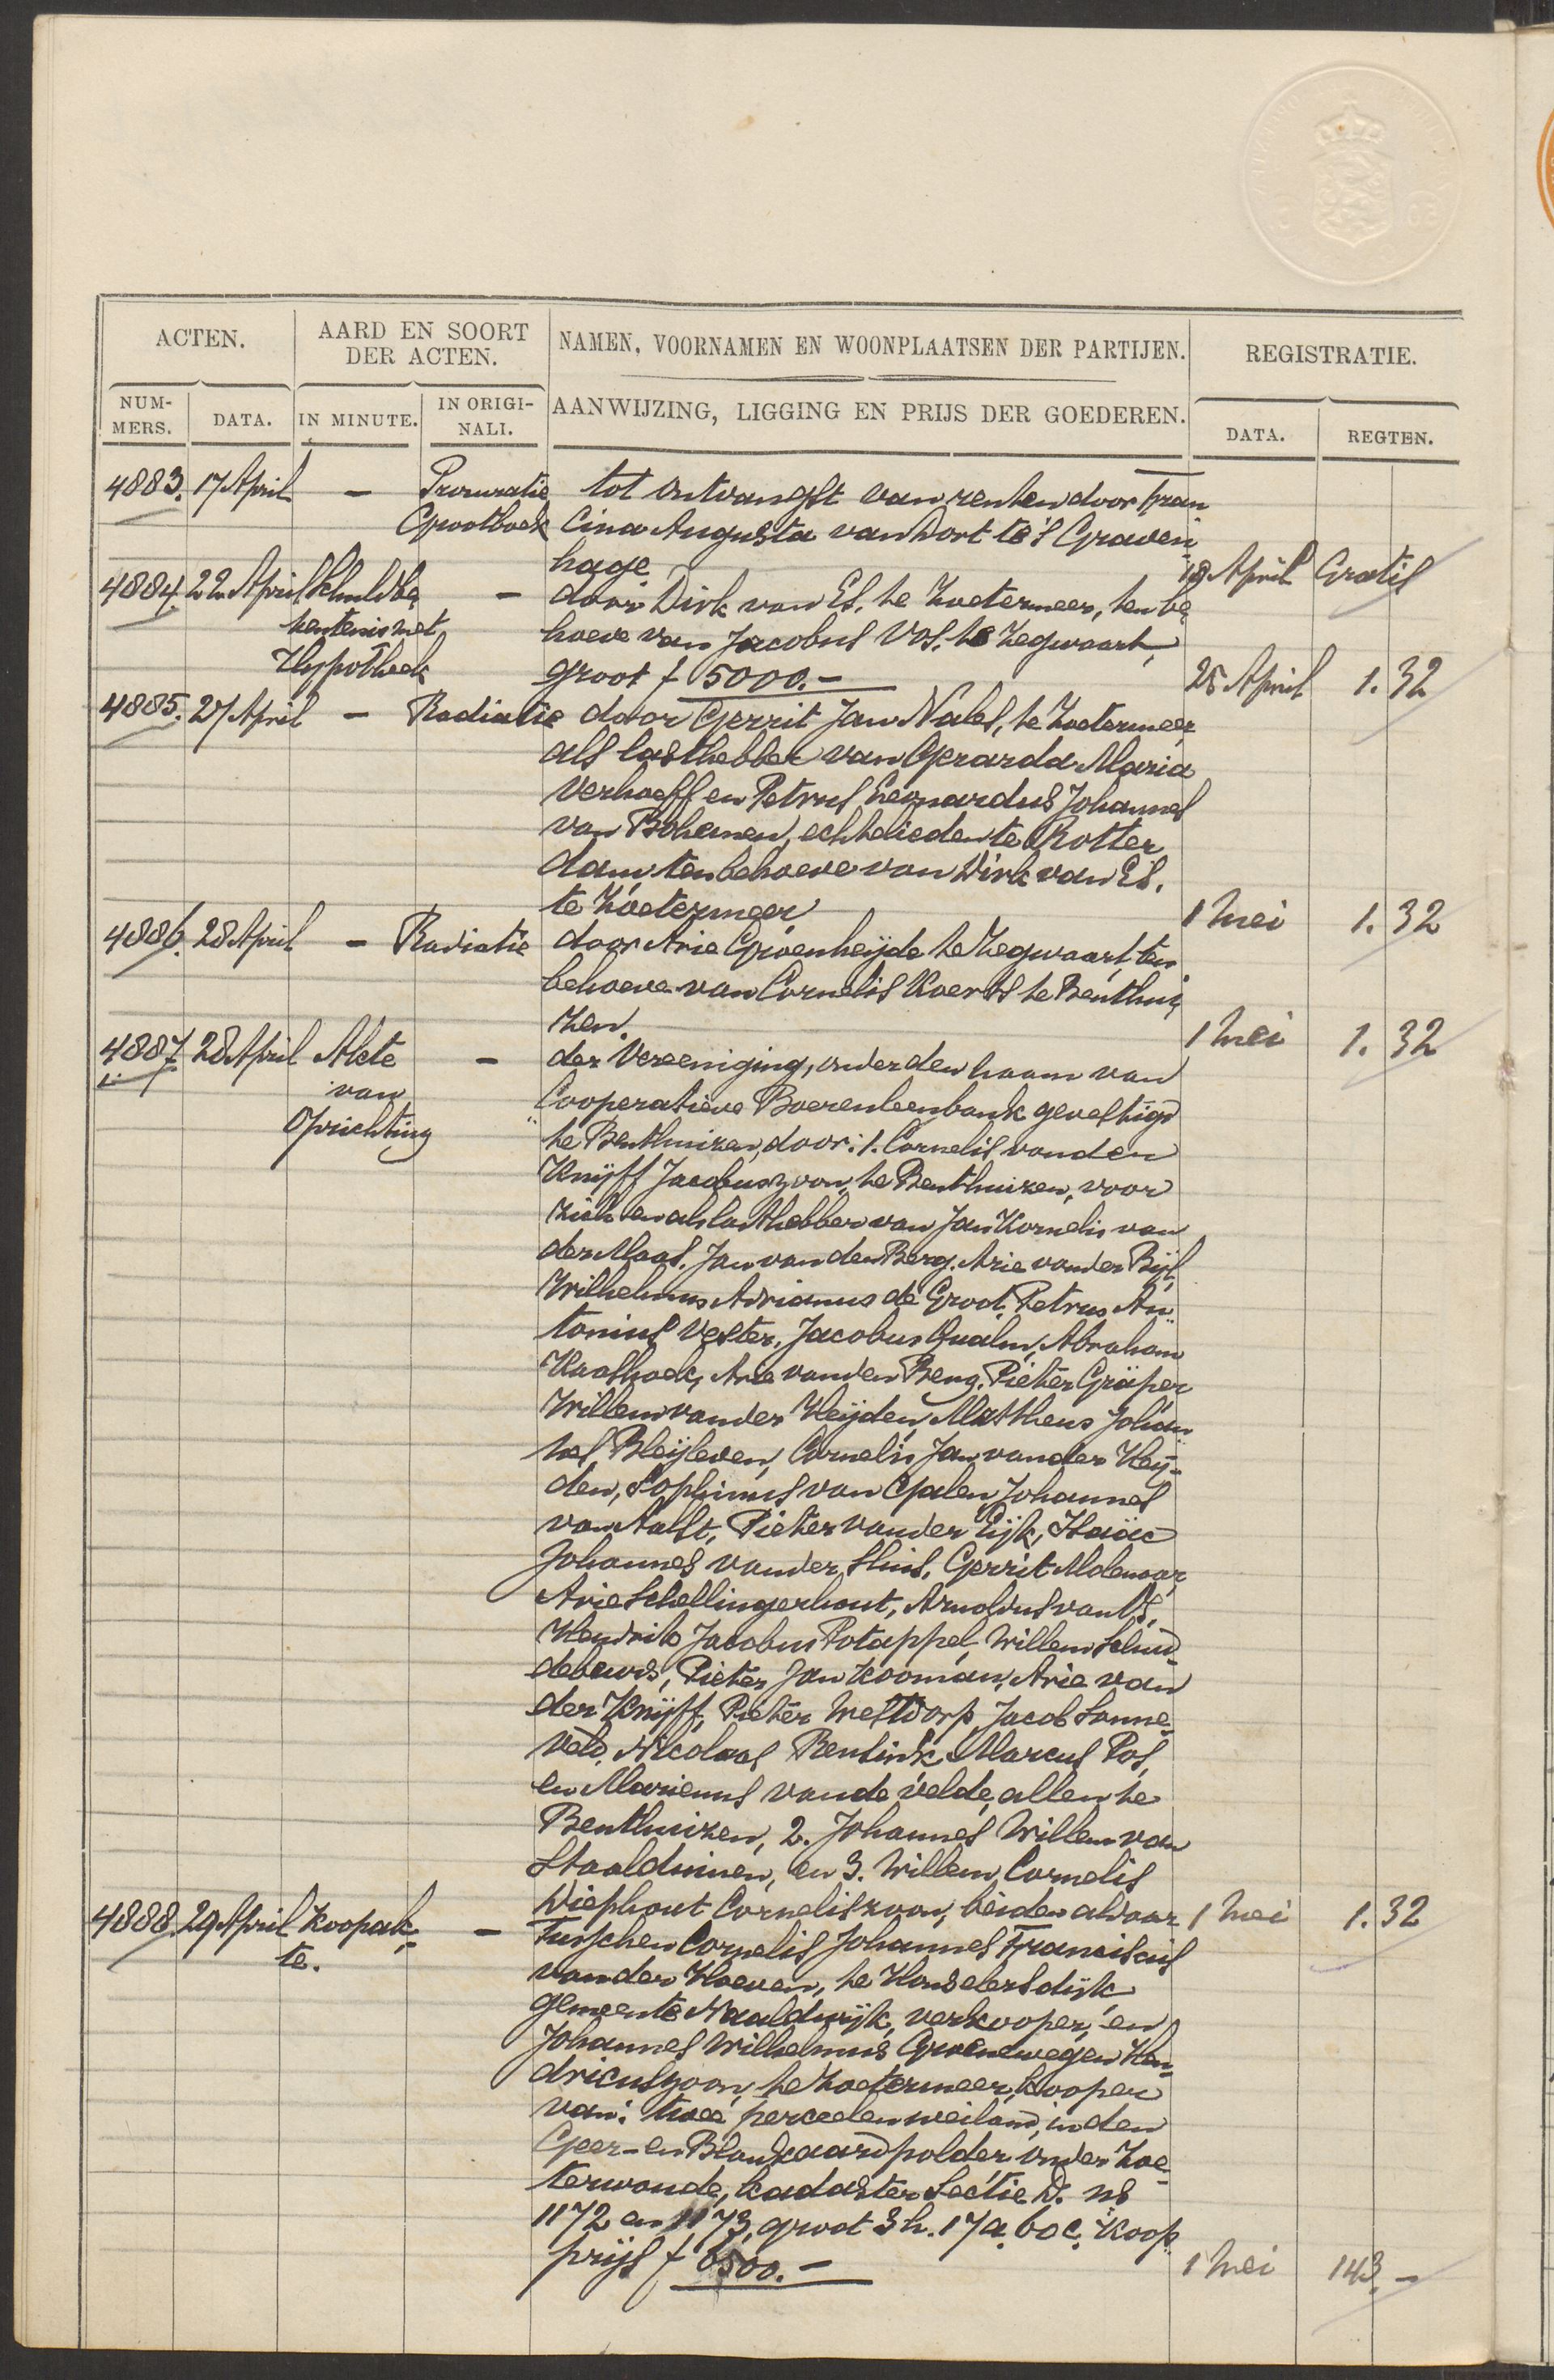 ACTEN.
AARD EN SOORT
DER ACTEN.
NAMEN, VOORNAMEN EN WOONPLAATSEN DER PARTIJEN.
REGISTRATIE.
NUM-
MERS.
DATA.
IN MINUTE.
IN ORIGI-
NALI.
AANWIJZING, LIGGING EN PRIJS DER GOEDEREN.
DATA.
REGTEN.
4883. 17 April — Procuratie tot ontvangst van renten door Fran
Grootboek cina Augusta van Dort te 's Graven
hage 18 April Gratis
4884. 22 April Schuldbe — door Dirk van Es, te Zoetermeer, ten be
kentenis met hoeve van Jacobus Vos, te Zegwaart,
Hypotheek groot f 5000.— 25 April 1.32
4885. 27 April — Radiatie door Gerrit Jan Nales, te Zoetermeer
als lasthebber van Gerarda Maria
Verhoeff en Petrus Leonardus Johannes
van Bohemen, echtelieden te Rotter
dam, ten behoeve van Dirk van Es,
te Zoetermeer 1 Mei 1.32
4886. 28 April — Radiatie door Arie Groenheijde te Zegwaart, ten
behoeve van Cornelis Koerts te Benthui
zen. 1 Mei 1.32
4887 28 April Akte — der Vereeniging, onder den naam van
van Cooperatieve Boerenleenbank gevestigd
Oprichting te Benthuizen, door: 1. Cornelis van den
Knijff Jacobuszoon, te Benthuizen, voor
zich en als lasthebber van Jan Kornelis van
der Maas, Jan van den Berg, Arie van der Bijl,
Wilhelmus Adrianus de Groot, Petrus An
tonius Vester, Jacobus Qualm, Abraham
Kaashoek, Arie van den Berg, Pieter Gräper
Willem van der Heijden, Mattheus Johan
nes Bleijleven, Cornelis Jan van der Heij-
den, Sophinus van Galen, Johannes
van Aalst, Pieter van der Eijk, Isaäc
Johannes van der Sluis, Gerrit Molenaar,
Arie Schellingerhout, Arnoldus van Es,
Hendrik Jacobus Potappel, Willem Schud
debeurs, Pieter Jan Kooman, Arie van
der Knijff, Pieter Westdorp, Jacob Sonne
veld, Nicolaas Rensink, Marcus Pos,
en Marinus van de Velde, allen te
Benthuizen, 2. Johannes Willem van
Staalduinen, en 3. Willem Cornelis
Diephout Corneliszoon, beiden aldaar 1 Mei 1.32
4888. 29 April Koopak — Tusschen Cornelis Johannes Franciscus
te. van der Hoeven, te Honselersdijk
gemeente Naaldwijk, verkooper, en
Johannes Wilhelmus Groenewegen Hen
dricuszoon, te Zoetermeer, kooper
van: twee perceelen weiland, in den
Geer- en Blankaardpolder onder Zoe
terwoude, kadaster Sectie D. ns
1172 en 1173, groot 3 h. 17 a. 60 c. Koop
prijs f 6500.— 1 Mei 143.—